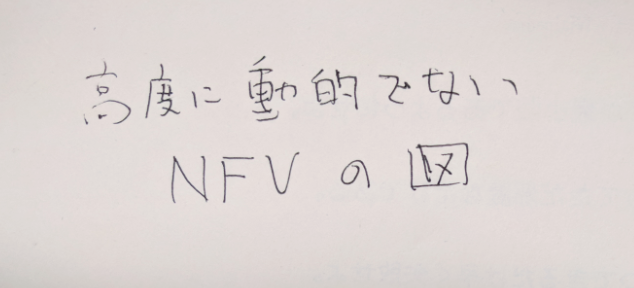 高度に動的でない
NFVの図